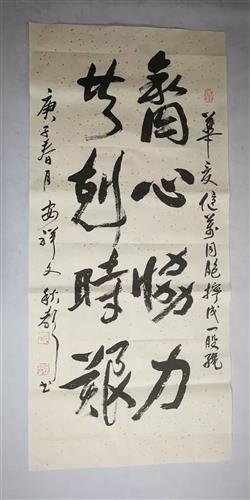 華夏億萬同胞擰成一股繩
齊心協力
共剋時艱
庚子春月安祥文書